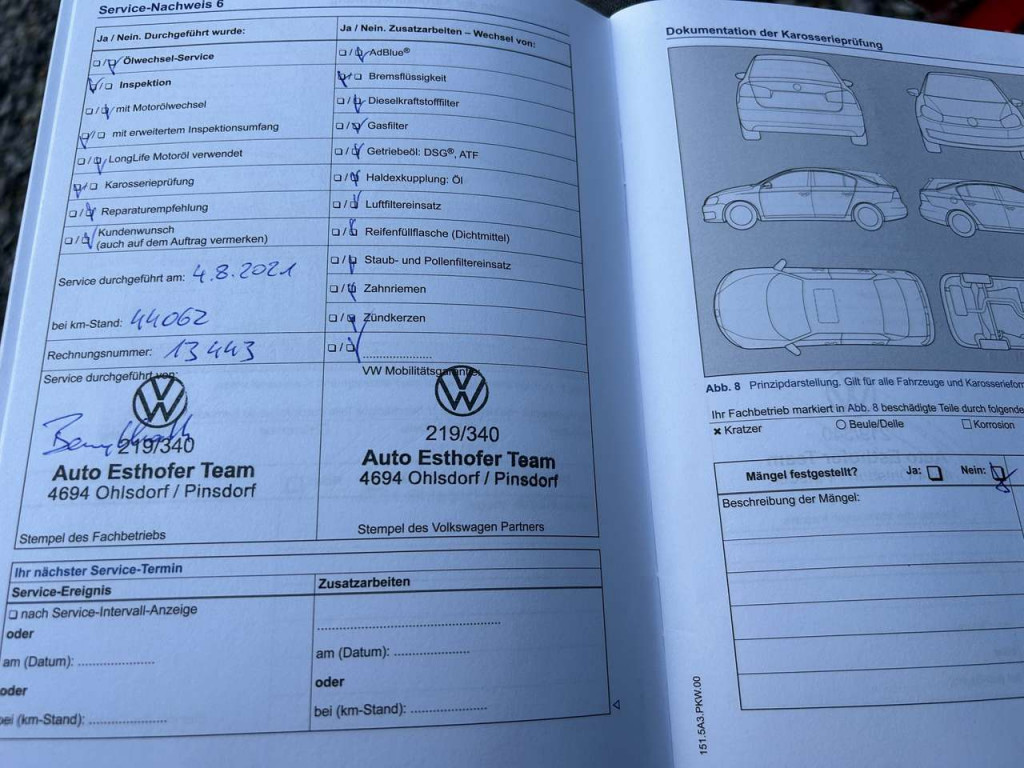 Service-Nachweis 6
Ja / Nein. Durchgeführt wurde:
❏ / ❏ Ölwechsel-Service
❏ / ❏ Inspektion
❏ / ❏ mit Motorölwechsel
❏ / ❏ mit erweitertem Inspektionsumfang
❏ / ❏ LongLife Motoröl verwendet
❏ / ❏ Karosserieprüfung
❏ / ❏ Reparaturempfehlung
❏ / ❏ Kundenwunsch
(auch auf dem Auftrag vermerken)
Service durchgeführt am: 4.8.2021
bei km-Stand: 44062
Rechnungsnummer: 13443
Service durchgeführt von:
219/340
Auto Esthofer Team
4694 Ohlsdorf / Pinsdorf
Stempel des Fachbetriebs
Ja / Nein. Zusatzarbeiten – Wechsel von:
❏ / ❏ AdBlue®
❏ / ❏ Bremsflüssigkeit
❏ / ❏ Dieselkraftstofffilter
❏ / ❏ Gasfilter
❏ / ❏ Getriebeöl: DSG®, ATF
❏ / ❏ Haldexkupplung: Öl
❏ / ❏ Luftfiltereinsatz
❏ / ❏ Reifenfüllflasche (Dichtmittel)
❏ / ❏ Staub- und Pollenfiltereinsatz
❏ / ❏ Zahnriemen
❏ / ❏ Zündkerzen
❏ / ❏ ......................
VW Mobilitätsgarantie:
219/340
Auto Esthofer Team
4694 Ohlsdorf / Pinsdorf
Stempel des Volkswagen Partners
Ihr nächster Service-Termin
Service-Ereignis
❏ nach Service-Intervall-Anzeige
oder
am (Datum): ...................
oder
bei (km-Stand): ...................
Zusatzarbeiten
.............................................
am (Datum): ...................
oder
bei (km-Stand): ...................
Dokumentation der Karosserieprüfung
Abb. 8 Prinzipdarstellung. Gilt für alle Fahrzeuge und Karosserieform
Ihr Fachbetrieb markiert in Abb. 8 beschädigte Teile durch folgende
✖ Kratzer ○ Beule/Delle ☐ Korrosion
Mängel festgestellt? Ja: ❏ Nein: ❏
Beschreibung der Mängel:
151.5A3.PKW.00